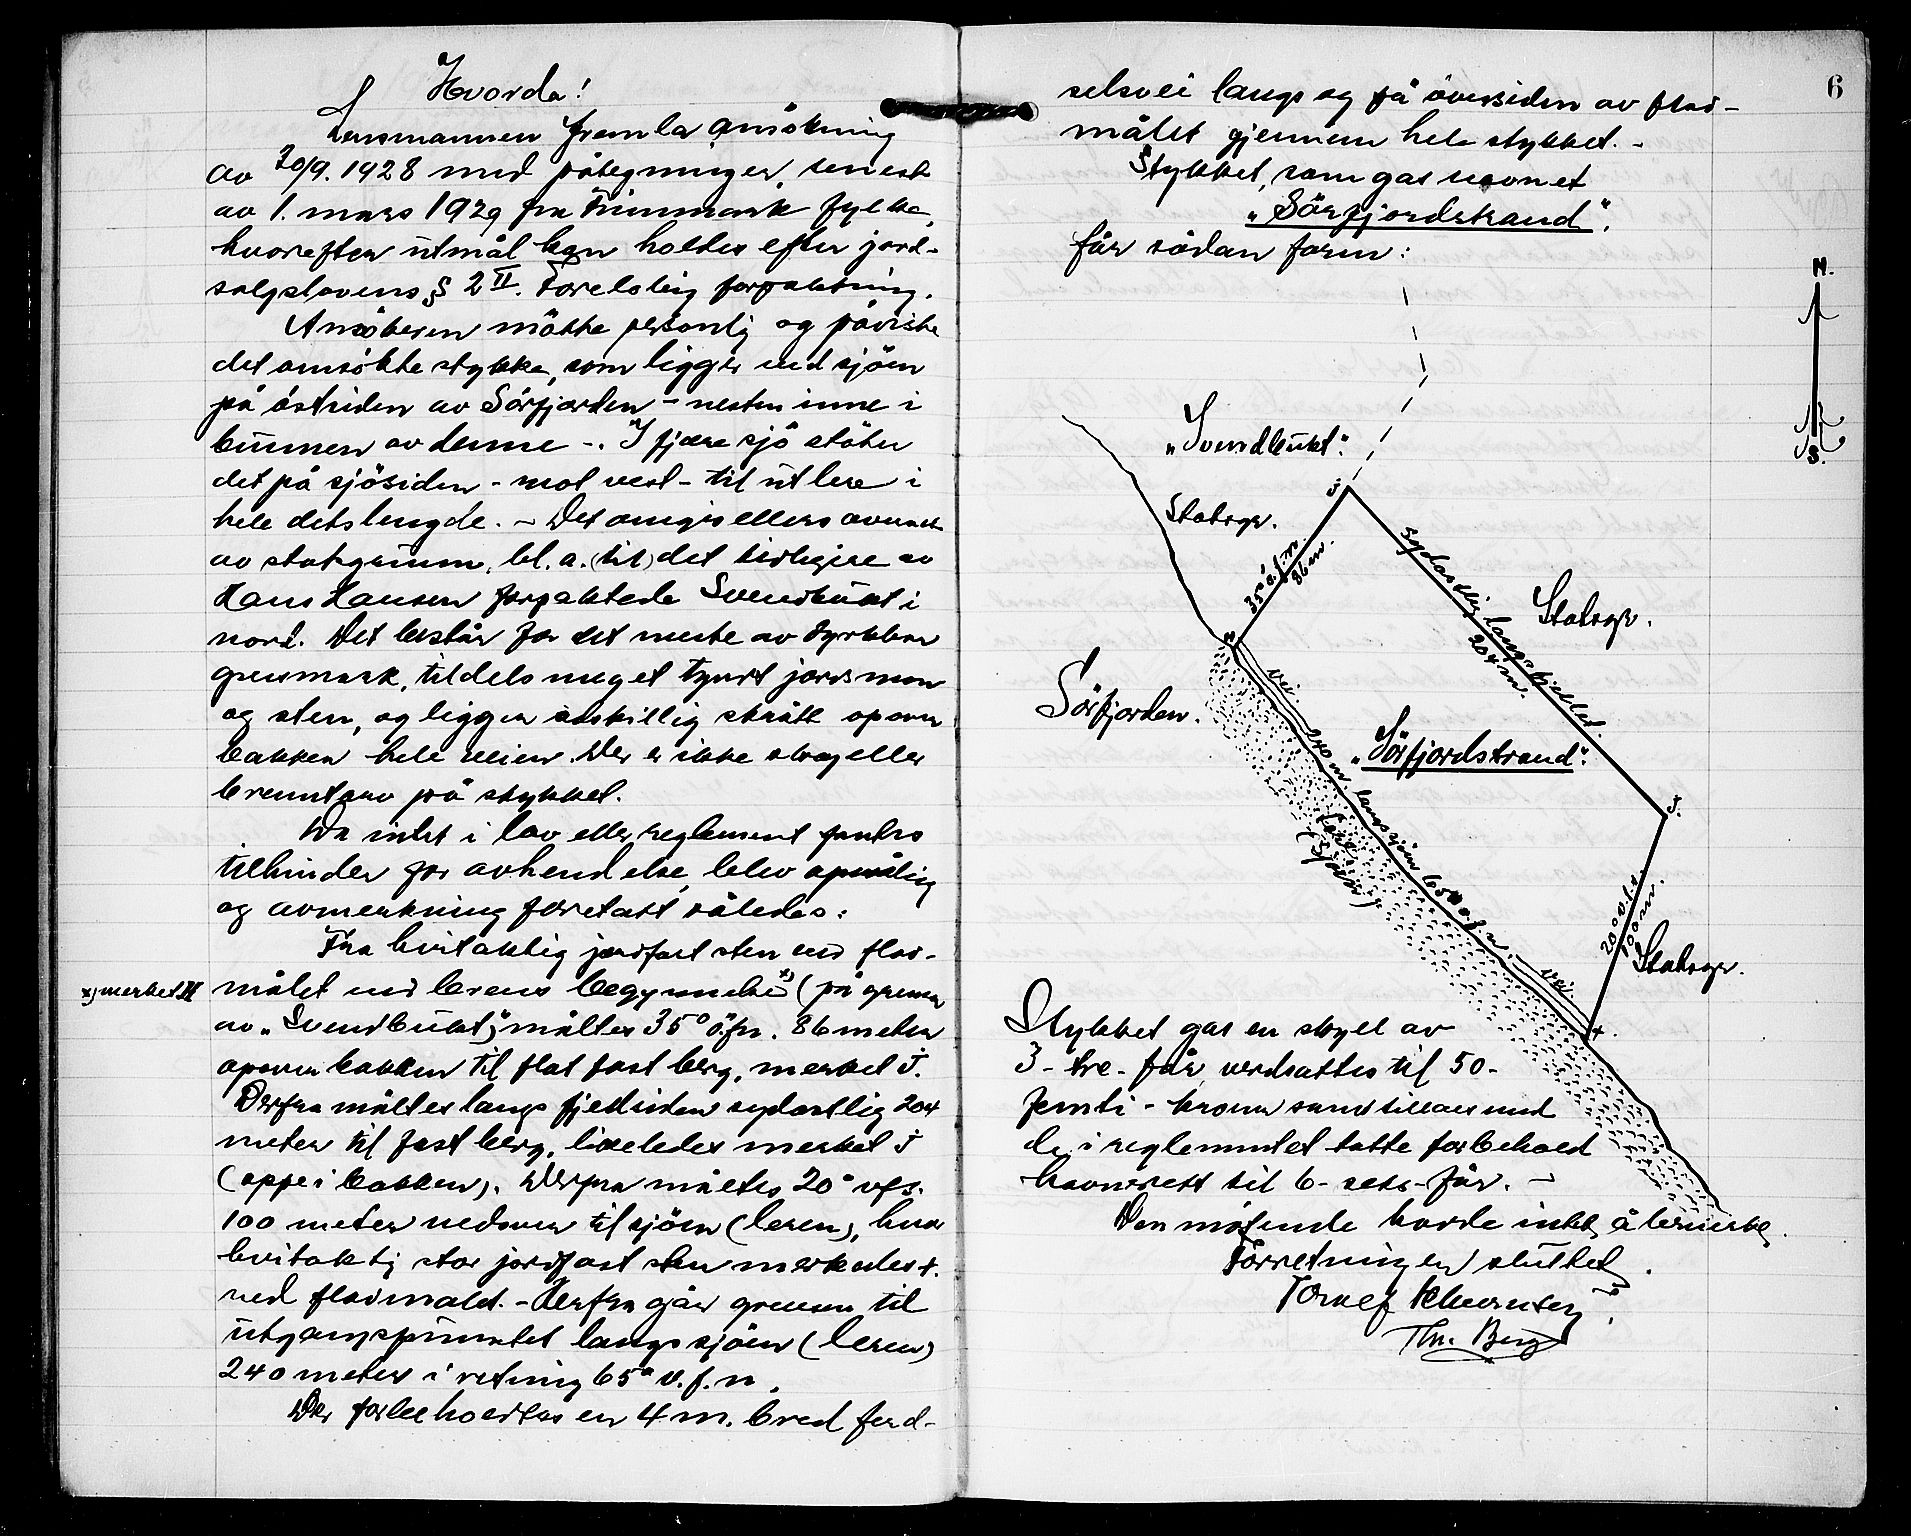 Hvorda!
Lensmannen framla ansökning
av 20/9. 1928 med påtegninger, senest
av 1. mars 1929 fra Finnmark fylke,
hvorefter utmål kan holdes efter jord-
salgslovens § 2 II. Foreløbig forpaktning.
Ansökeren mötte personlig og påviste
det ansökte stykke, som ligger ved sjöen
på östsiden av Sörfjorden - nesten inne i
bunnen av denne -. I fjære sjö stöter
det på sjösiden - mot vest - til utlere i
hele dets lengde. - Det omgis ellers overalt
av statsgrunn, bl. a. (til) det tidligere av
Hans Hansen forpaktede Svendbukt i
nord. Det består for det meste av dyrkbar
gressmark, tildels meget tyndt jordsmon
og sten, og ligger adskillig skrått opover
bakken hele veien. Der er ikke skog eller
brenntorv på stykket.
Da intet i lov eller reglement fantes
tilhinder for avhendelse, blev opmåling
og avmerkning foretatt således:
Fra hvitaktig jordfast sten ved flod-
x) merket X
målet ved lerens begynnelse x) (på grensen
av "Svendbukt") måltes 35° ö.f.n. 86 meter
opover bakken til flat fast berg, merket j.
Derfra måltes langs fjellsiden sydostlig 204
meter til fast berg, likeledes merket j
(oppe i bakken). Derfra måltes 20° v.f.s.
100 meter nedover til sjöen (leren), hvor
hvitaktig stor jordfast sten merkedes +.
ved flodmålet. - Derfra går grensen til
utgangspunktet langs sjöen (leren)
240 meter i retning 65° v.f.n.
Der forbeholdtes en 4 m. bred ferd-
6
selsvei langs og på översiden av flod-
målet gjennem hele stykket. -
Stykket, som gas navnet
"Sörfjordstrand".
får sådan form:
N.
S.
"Svendbukt".
Statsgr.
j
35° ö.f.n.
86 m.
sydostlig langs fjellet.
204 m.
Statsgr.
Sörfjorden.
vei.
"Sörfjordstrand".
240 m. langs sjöen 65° v.f.n.
Lere
(Sjöen)
j.
20° v.f.s.
100 m.
Statsgr.
vei.
+.
Stykket gas en skyld av
3 - tre - öre, verdsattes til 50 -
femti - kroner samt tillaes med
de i reglementet tatte forbehold
havnerett til 6 - seks - får. -
Den mötende hadde intet å bemerke.
Forretningen sluttet.
Thv. Berg